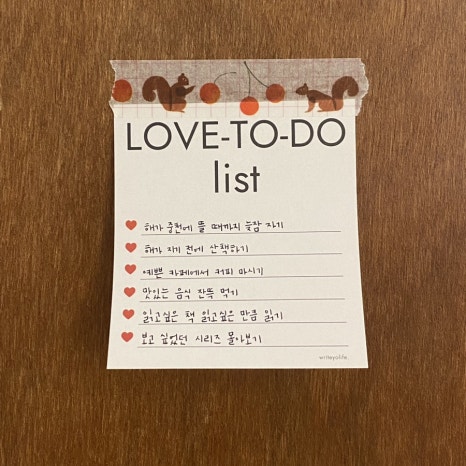 LOVE-TO-DO
list
해가 중천에 뜰 때까지 늦잠 자기
해가 지기 전에 산책하기
예쁜 카페에서 커피 마시기
맛있는 음식 잔뜩 먹기
읽고싶은 책 읽고싶은 만큼 읽기
보고 싶었던 시리즈 몰아보기
writeyolife